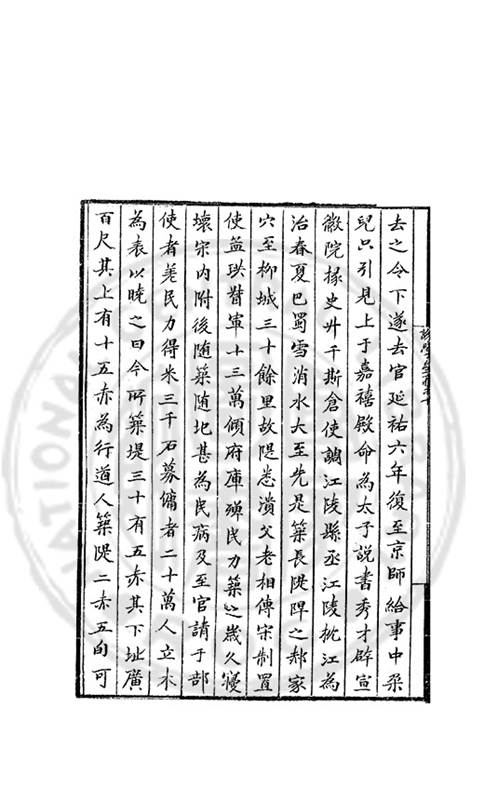 去之令下遂去官延祐六年復至京師給事中朶
兒只引見上于嘉禧殿命為太子説書秀才辟宣
徽院掾史廾千斯倉使調江陵縣丞江陵枕江為
治春夏巴蜀雪消水大至先是築長隄障之郝家
穴至柳城三十餘里故隄悉潰父老相傳宋制置
使孟珙嘗軍十三萬傾府庫殫民力築之歲久寖
壞宋内附後随築随圮甚為民病及至官請于部
使者差民力得米三千石募傭者二十萬人立木
為表以曉之曰今所築堤三十有五赤其下址廣
百尺其上有十五赤為行道人築隄二赤五旬可